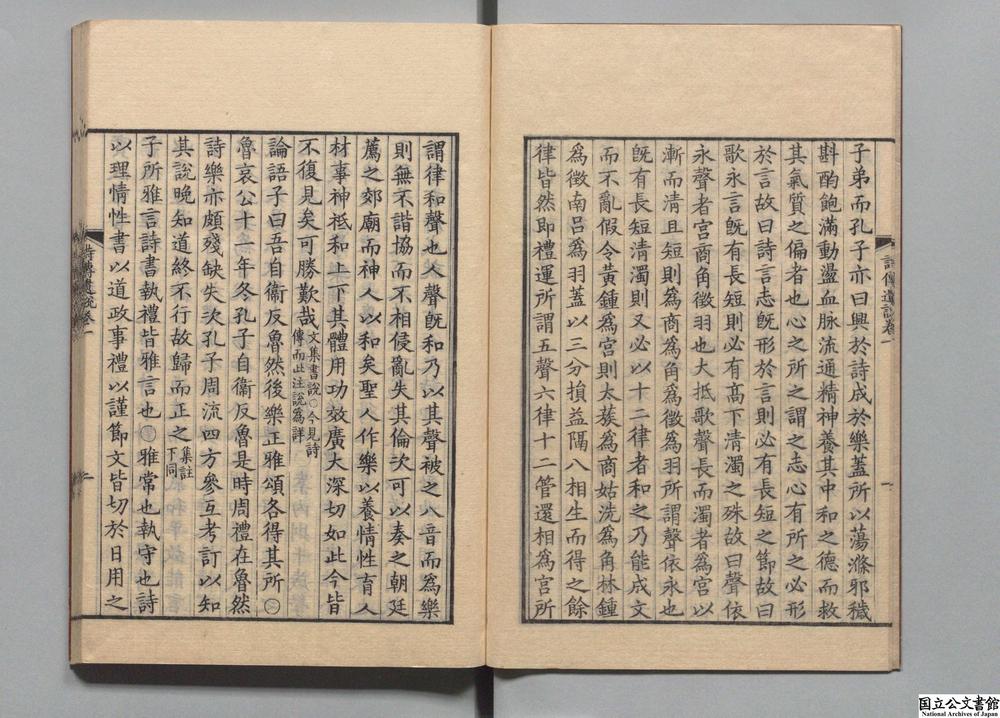 子弟而孔子亦曰興於詩成於樂蓋所以蕩滌邪穢
斟酌飽滿動盪血脉流通精神養其中和之德而救
其氣質之偏者也心之所之謂之志心有所之必形
於言故曰詩言志旣形於言則必有長短之節故曰
歌永言旣有長短則必有高下清濁之殊故曰聲依
永聲者宮商角徵羽也大抵歌聲長而濁者爲宮以
漸而清且短則爲商爲角爲徵爲羽所謂聲依永也
旣有長短清濁則又必以十二律者和之乃能成文
而不亂假令黃鍾爲宮則太蔟爲商姑洗爲角林鍾
爲徵南呂爲羽蓋以三分損益隔八相生而得之餘
律皆然卽禮運所謂五聲六律十二管還相爲宮所
詩傳遺說卷一
一
謂律和聲也人聲旣和乃以其聲被之八音而爲樂
則無不諧協而不相侵亂失其倫次可以奏之朝廷
薦之郊廟而神人以和矣聖人作樂以養情性育人
材事神祗和上下其體用功效廣大深切如此今皆
不復見矣可勝歎哉文集書說○今見詩
傳而此注說爲詳
論語子曰吾自衞反魯然後樂正雅頌各得其所○
魯哀公十一年冬孔子自衞反魯是時周禮在魯然
詩樂亦頗殘缺失次孔子周流四方參互考訂以知
其說晚知道終不行故歸而正之集註
下同
子所雅言詩書執禮皆雅言也○雅常也執守也詩
以理情性書以道政事禮以謹節文皆切於日用之
詩傳遺說卷一
二
国立公文書館
National Archives of Japan